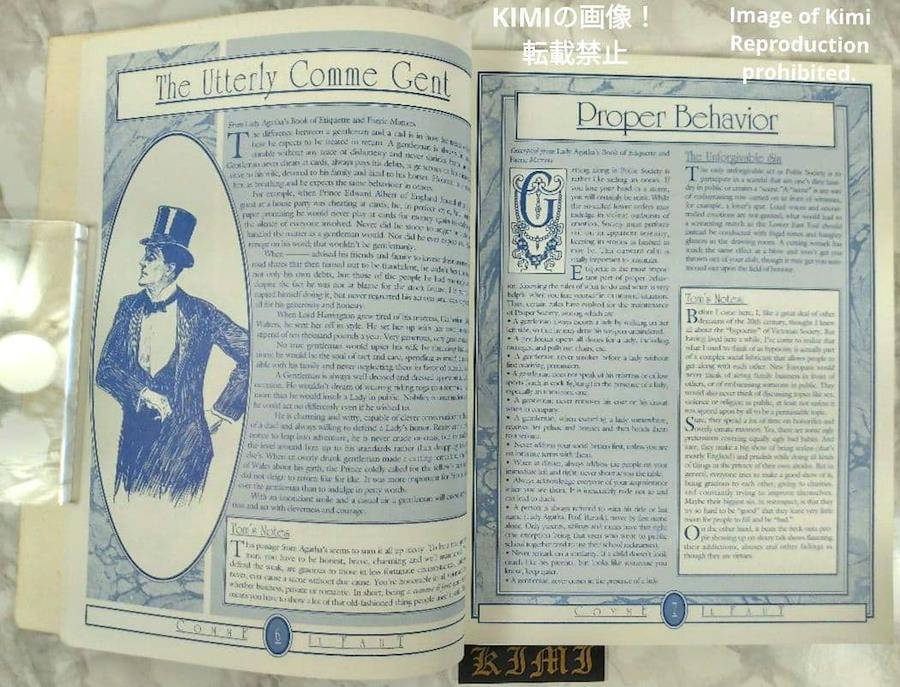 KIMIの画像！
転載禁止
Image of Kimi
Reproduction
prohibited.
The Utterly Comme Gent
From Lady Agatha's Book of Etiquette and Faerie Manners
The difference between a gentleman and a cad is in
how he expects to be treated in return. A gentleman is always
without any trace of dishonesty and never
Gentlemen never cheats at cards, always pays his debts, is
to his wife, devoted to his family and kind to his horses.
as breathing and he expects the same behaviour in others.
For example, when Prince Edward Albert of England found
guest at a house party was cheating at cards, he,
paper promising he would never play at cards for money again
the silence of everyone involved. Never did he stoop to
handled the matter as a gentleman would. Nor did he ever
revenge on his word; that wouldn't be gentlemanly.
When advised his friends and family to invest
road shares that then turned out to be fraudulent, he
not only his own debts, but those of the people he had
despite the fact he was not at blame for the stock failure.
himself doing it, but never regretted his actions
all for his generosity and honesty.
When Lord Harrington grew tired of his mistress,
Walters, he sent her off in style. He set her up with
stipend of ten thousand pounds a year. Very generous, very
No true gentleman would
he would be the soul of tact and care, spending
able with his family and never neglecting them in favor of
A Gentleman is always well dressed and dressed
occasion. He wouldn't dream of wearing riding togs to a
than he would insult a Lady in public. Nobility is
he could act no differently even if he wished to.
He is charming and witty, capable of clever conversation
of a duel and always willing to defend a Lady's honor.
notice to leap into adventure, he is never crude or crass,
the level around him up to his standards rather than dropping
When an overly drunk gentleman made a cutting
of Wales about his girth, the Prince coldly called for the fellow's
did not deign to return like for like. It was more important for
ever the gentleman than to indulge in petty words.
With an insouciant smile and a casual air a gentleman will
and act with cleverness and courage.
Tom's Notes
This passage from Agatha's seems to sum it all up nicely. To be a
man, you have to be honest, brave, charming and well
defend the weak, are gracious to those in less fortunate circumstances,
never, ever cause a scene without due cause. You're honorable in all
whether business, private or romantic. In short, being a comme il faut
means you have to show a lot of that old-fashioned thing people used to call
COMME 6 IL FAUT
Proper Behavior
Excerpted from Lady Agatha's Book of Etiquette and
Faerie Manners
Getting along in Polite Society is
rather like sailing an ocean. If
you lose your head in a storm,
you will certainly be sunk. While
the so-called lower orders may
indulge in violent outbursts of
emotion, Society must perforce
put on an apparent serenity,
keeping its storms as hushed as
may be. This outward calm is
vitally important to maintain.
Etiquette is the most impor-
tant part of proper behav-
ior. Knowing the rules of what to do and when is very
helpful when you find yourself in unusual situations.
Thus, certain rules have evolved for the maintenance
of Proper Society, among which are:
• A gentleman always assists a lady by walking on her
left side, so that he may draw his weapon unhindered.
• A gentleman opens all doors for a lady, including
carriages, and pulls out chairs, etc.
• A gentleman never smokes before a lady without
first receiving permission.
• A gentleman does not speak of his mistress or of low
sports (such as cock fighting) in the presence of a lady,
especially an unmarried one.
• A gentleman never removes his coat or his cravat
when in company.
• A gentleman, when escorting a lady somewhere,
receives her pelisse and bonnet and then hands them
to a servant.
• Never address your social betters first, unless you are
on intimate terms with them.
• When at dinner, always address the people on your
immediate left and right; never shout across the table.
• Always acknowledge everyone of your acquaintance
when you see them. It is inexcusably rude not to and
can lead to duels.
• A person is always referred to with his title or last
name (Lady Agatha, Prof. Harold), never by first name
alone. Only parents, siblings and mates have that right
(the exception being that men who went to public
school together tend to use their school nicknames).
• Never remark on a similarity. If a child doesn't look
much like his parents, but looks like someone you
know, keep quiet.
• A gentleman never curses in the presence of a lady.
The Unforgivable Sin
The only unforgivable act in Polite Society is to
participate in a scandal that is
dry in public or create a "scene." A "scene" is any sort
of embarrassing row carried on in front of witnesses,
for example, a lover's spat. Loud voices and uncon-
trolled emotions are not genteel, what would lead to
a screaming match in the Lower East End should
instead be conducted with frigid tones and haughty
glances in the drawing room. A cutting remark has
much the same effect as a blow and won't get you
thrown out of your club, though it may get you sum-
moned out upon the field of honour.
Tom's Notes
Before I came here, I, like a great deal of other
denizens of the 20th century, thought I knew
all about the "hypocrisy" of Victorian Society. But
having lived here a while, I've come to realize that
what I used to think of as hypocrisy is actually part
of a complex social lubricant that allows people to
get along with each other. New Europans would
never think of airing family business in front of
others, or of embarrassing someone in public. They
would also never think of discussing topics like sex,
violence or religion in public, at least not unless it
was agreed upon by all to be a permissable topic.
Sure, they spend a lot of time on honorifics and
overly ornate manners. Yes, there are some ugly
pretensions covering equally ugly bad habits. And
sure, they make a big show of being stolid (that's
mostly England) and prudish while doing all kinds
of things in the privacy of their own abodes. But in
general, everyone tries to make a good show of it,
being gracious to each other, giving to charities,
and constantly trying to improve themselves.
Maybe their biggest sin, in retrospect, is that they
try so hard to be "good" that they leave very little
room for people to fail and be "bad."
On the other hand, it beats the heck outta peo-
ple showing up on sleazy talk shows flaunting
their addictions, abuses and other failings as
though they are virtues.
COMME 7 IL FAUT
KIMI